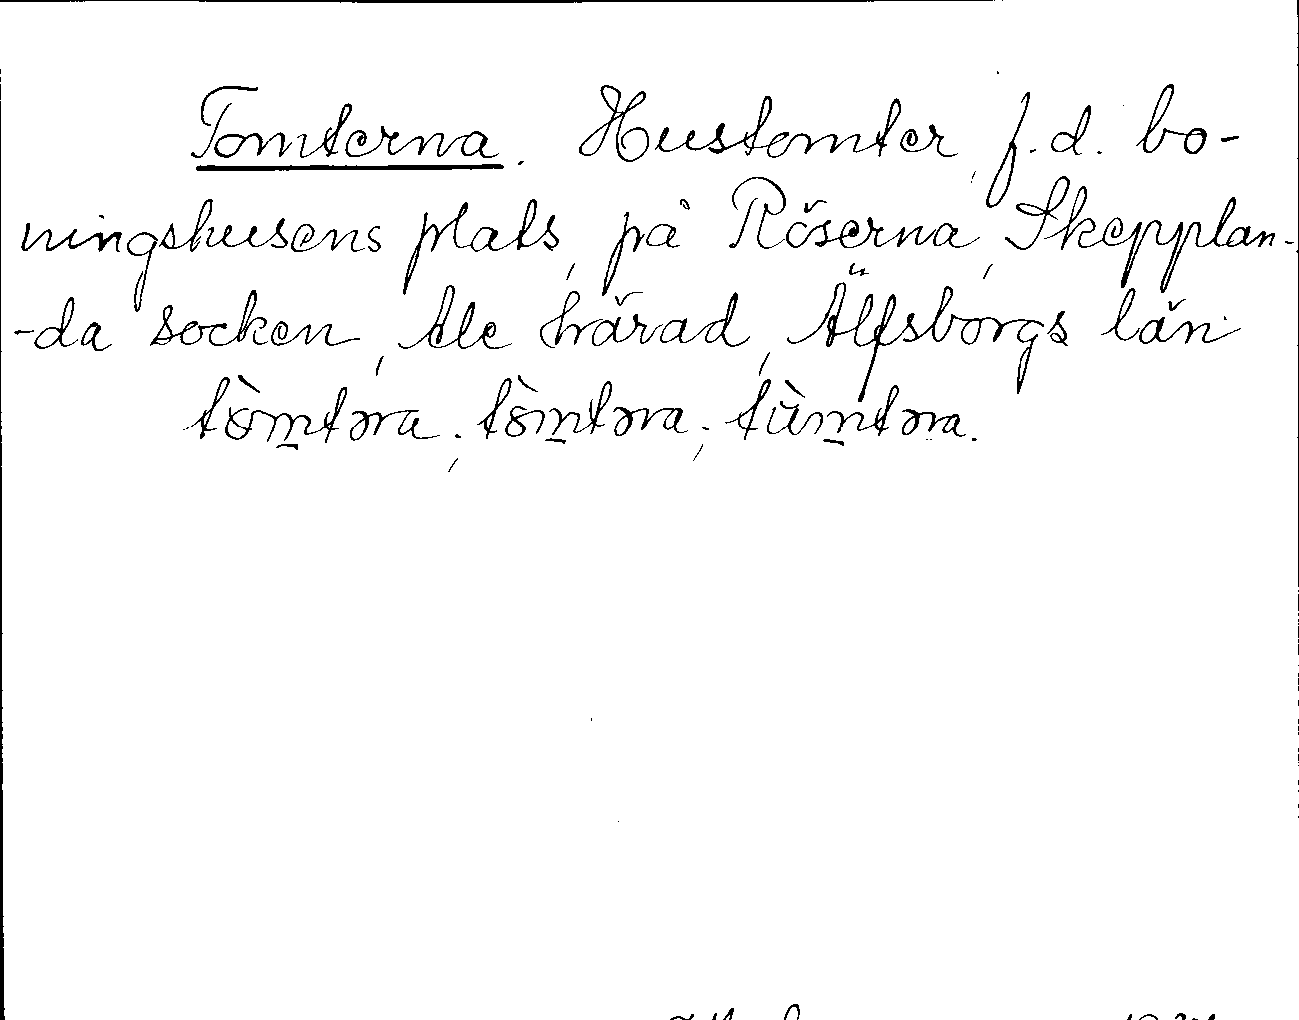 Tomterna. Hustomter, f.d. bo-
ningshusens plats, på Röserna, Skepplan-
-da socken, Ale härad, Älfsborgs län
tòm̲təra; tòm̲təra; tùm̲təra.